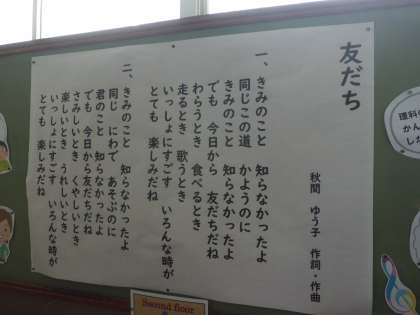 友だち
秋間 ゆう子 作詞・作曲
一、きみのこと 知らなかったよ
同じこの道 かようのに
きみのこと 知らなかったよ
でも 今日から 友だちだね
わらうとき 食べるとき
走るとき 歌うとき
いっしょにすごす いろんな時が
とても 楽しみだね
二、きみのこと 知らなかったよ
同じ にわで あそぶのに
君のこと 知らなかったよ
でも 今日から友だちだね
さみしいとき くやしいとき
楽しいとき うれしいとき
いっしょにすごす いろんな時が
とても 楽しみだね
理科
かん
した
Second floor